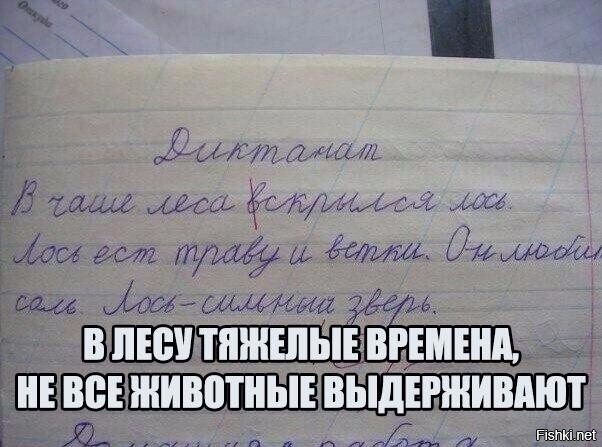 Откуда
Диктанат
В чаше леса вскрылся лось.
Лось ест траву и ветки. Он люби
соль. Лось-сильный зверь.
В ЛЕСУ ТЯЖЕЛЫЕ ВРЕМЕНА,
НЕ ВСЕ ЖИВОТНЫЕ ВЫДЕРЖИВАЮТ
работа
Fishki.net